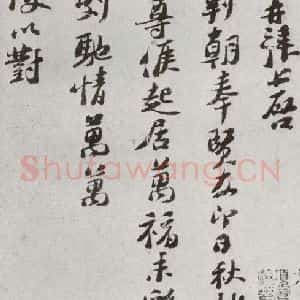 再拜上啓
朝奉賢友即日秋
尊候起居萬福未
馳情萬萬
以對
Shufawang.CN